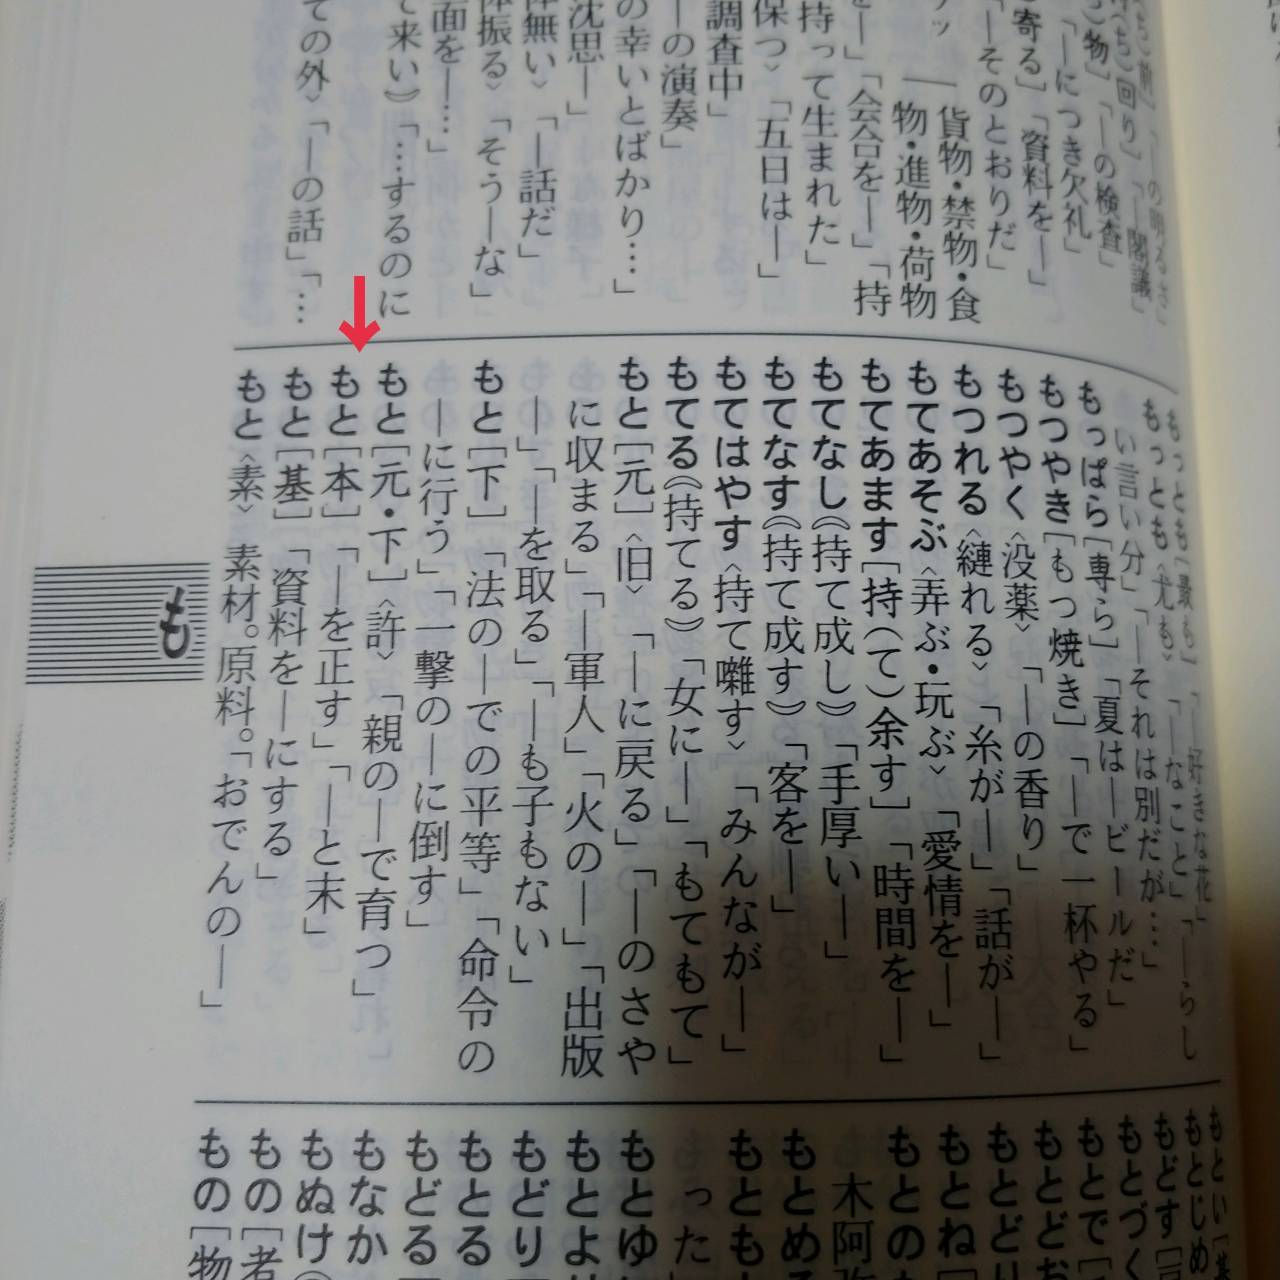 前」「―の明るさ」
(ち)回り」「―閣議」
物」「―の検査」
「―につき欠礼」
寄る」「資料を―」
「―そのとおりだ」
ッ ― 貨物・禁物・食
物・進物・荷物
を―」「会合を―」「持
持って生まれた」
保つ〉「五日は―」
調査中」
―の演奏」
の幸いとばかり…」
沈思―」
無い〉「―話だ」
振る〉「そう―な」
面を―…」
て来い》「…するのに
ての外〉「―の話」「…
もっとも[最も]「―好きな花」
もっとも〈尤も〉「―なこと」「―らし
い言い分」「―それは別だが…」
もっぱら[専ら]「夏は―ビールだ」
もつやき[もつ焼き]「―で一杯やる」
もつやく〈没薬〉「―の香り」
もつれる〈縺れる〉「糸が―」「話が―」
もてあそぶ〈弄ぶ・玩ぶ〉「愛情を―」
もてあます[持(て)余す]「時間を―」
もてなし《持て成し》「手厚い―」
もてなす《持て成す》「客を―」
もてはやす〈持て囃す〉「みんなが―」
もてる《持てる》「女に―」「もてもて」
もと[元]〈旧〉「―に戻る」「―のさや
に収まる」「―軍人」「火の―」「出版
―」「―を取る」「―も子もない」
もと[下]「法の―での平等」「命令の
―に行う」「一撃の―に倒す」
もと[元・下]〈許〉「親の―で育つ」
もと[本]「―を正す」「―と末」
もと[基]「資料を―にする」
もと〈素〉素材。原料。「おでんの―」
も
もとい[基
もとじめ
もどす[
もとづく
もとで[
もとどお
もとどり
もとね[
もとのも
木阿弥
もとめる
もとも
った」
もとゆ
もとよ
もどり
もとる
もどる[
もなか
もぬけ
もの[者
もの[物